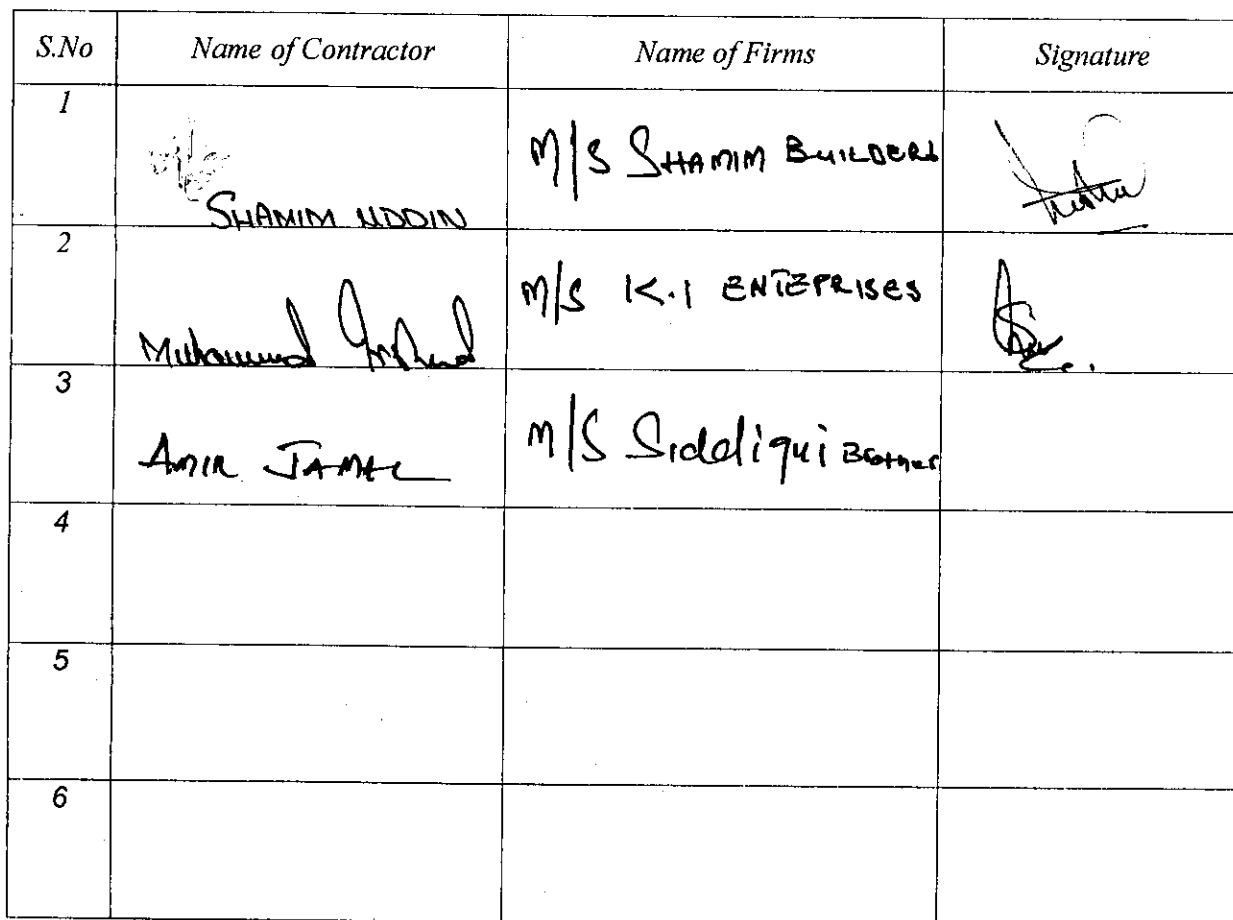 S.No Name of Contractor Name of Firms Signature
1 SHAMIM UDDIN M/S SHAMIM BUILDERS
2 Muhammad M/S K.I ENTEPRISES
3 AMIR JAMAL M/S Siddiqui Brother
4
5
6